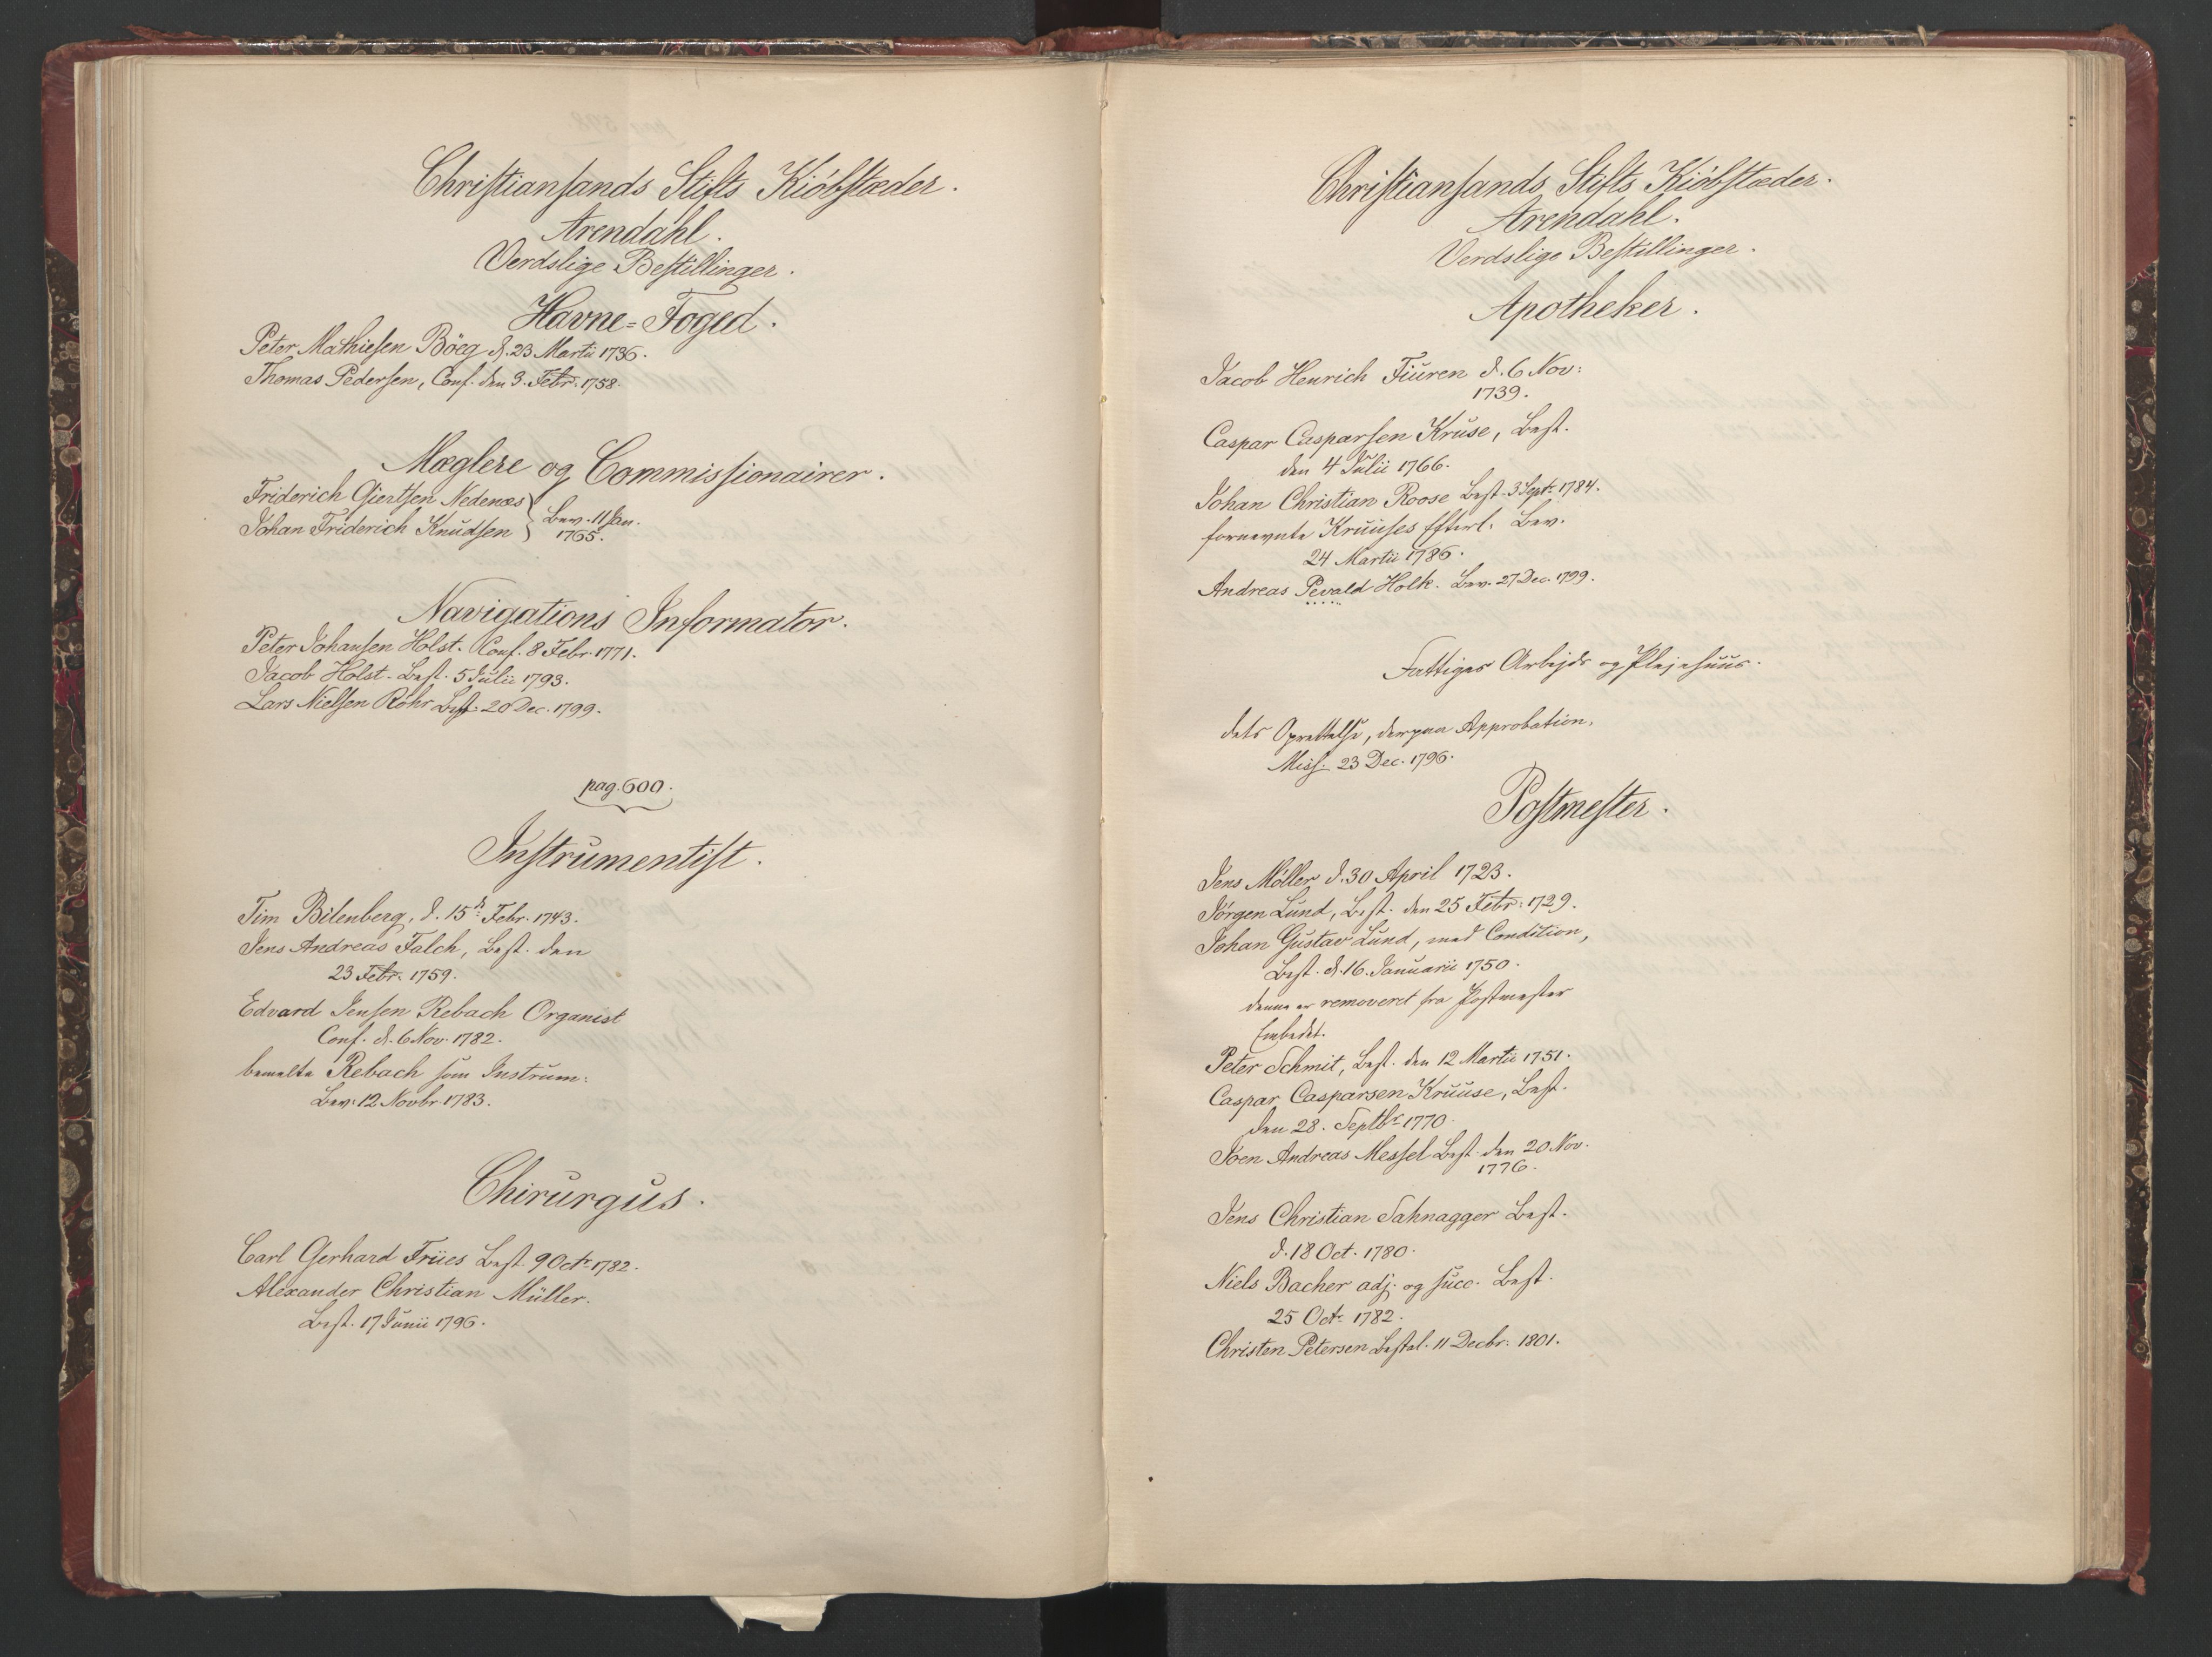 Christiansands Stifts Kiöbstæder.
Arendahl.
Verdslige Bestillinger.
Havne-Foged.
Peter Mathiesen Böeg d. 23 Martii 1736.
Thomas Pedersen, Conf. den 3. Febr. 1758.
Mæglere og Commissionairer.
Friderich Giertsen Nedenæs } Bev. 11 Jan.
Johan Friderich Knudsen } 1765.
Navigations Informator.
Peter Johansen Holst. Conf. 8 Febr. 1771.
Jacob Holst. Best. 5 Julii 1793.
Lars Nielsen Röhr Best. 20 Dec. 1799.
pag. 600.
Instrumentist.
Tim Bilenberg, d. 15de Febr. 1743.
Jens Andreas Falch, Best. den
23 Febr. 1759.
Edvard Jensen Rebach Organist
Conf. d. 6 Nov. 1782.
bemelte Rebach som Instrum:
Bev: 12 Novbr. 1783.
Chirurgus.
Carl Gerhard Friies Best. 9 Octr. 1782.
Alexander Christian Müller.
Best. 17 Junii 1796.
Christiansands Stifts Kiöbstæder.
Arendahl.
Verdslige Bestillinger.
Apotheker.
Jacob Henrich Fiuren d. 6 Nov:
1739.
Caspar Casparsen Kruse, Best.
den 4 Julii 1766.
Johan Christian Roose Best. 3 Septr. 1784.
fornevnte Kruuses Efterl. Bev.
24 Martii 1786.
Andreas Pevald Holk. Bev. 27 Dec. 1799.
Fattiges Arbejds og Plejehuus.
dets Oprettelse, derpaa Approbation,
Miss. 23 Dec. 1796.
Postmester.
Jens Möller d. 30 April 1723.
Jörgen Lund, Best. den 25 Febr: 1729.
Johan Gustav Lund, med Condition,
Best. d. 16. Januarii 1750.
denne er removeret fra Postmester
Embedet.
Peter Schmit, Best. den 12 Martii 1751.
Caspar Casparsen Kruuse, Best.
den 28. Septbr 1770.
Joen Andreas Messel Best. den 20 Nov.
1776.
Jens Christian Sahnagger Best.
d. 18 Oct. 1780.
Niels Bacher adj. og succ. Best.
25 Octr. 1782.
Christen Petersen Bestal. 11 Decbr. 1801.